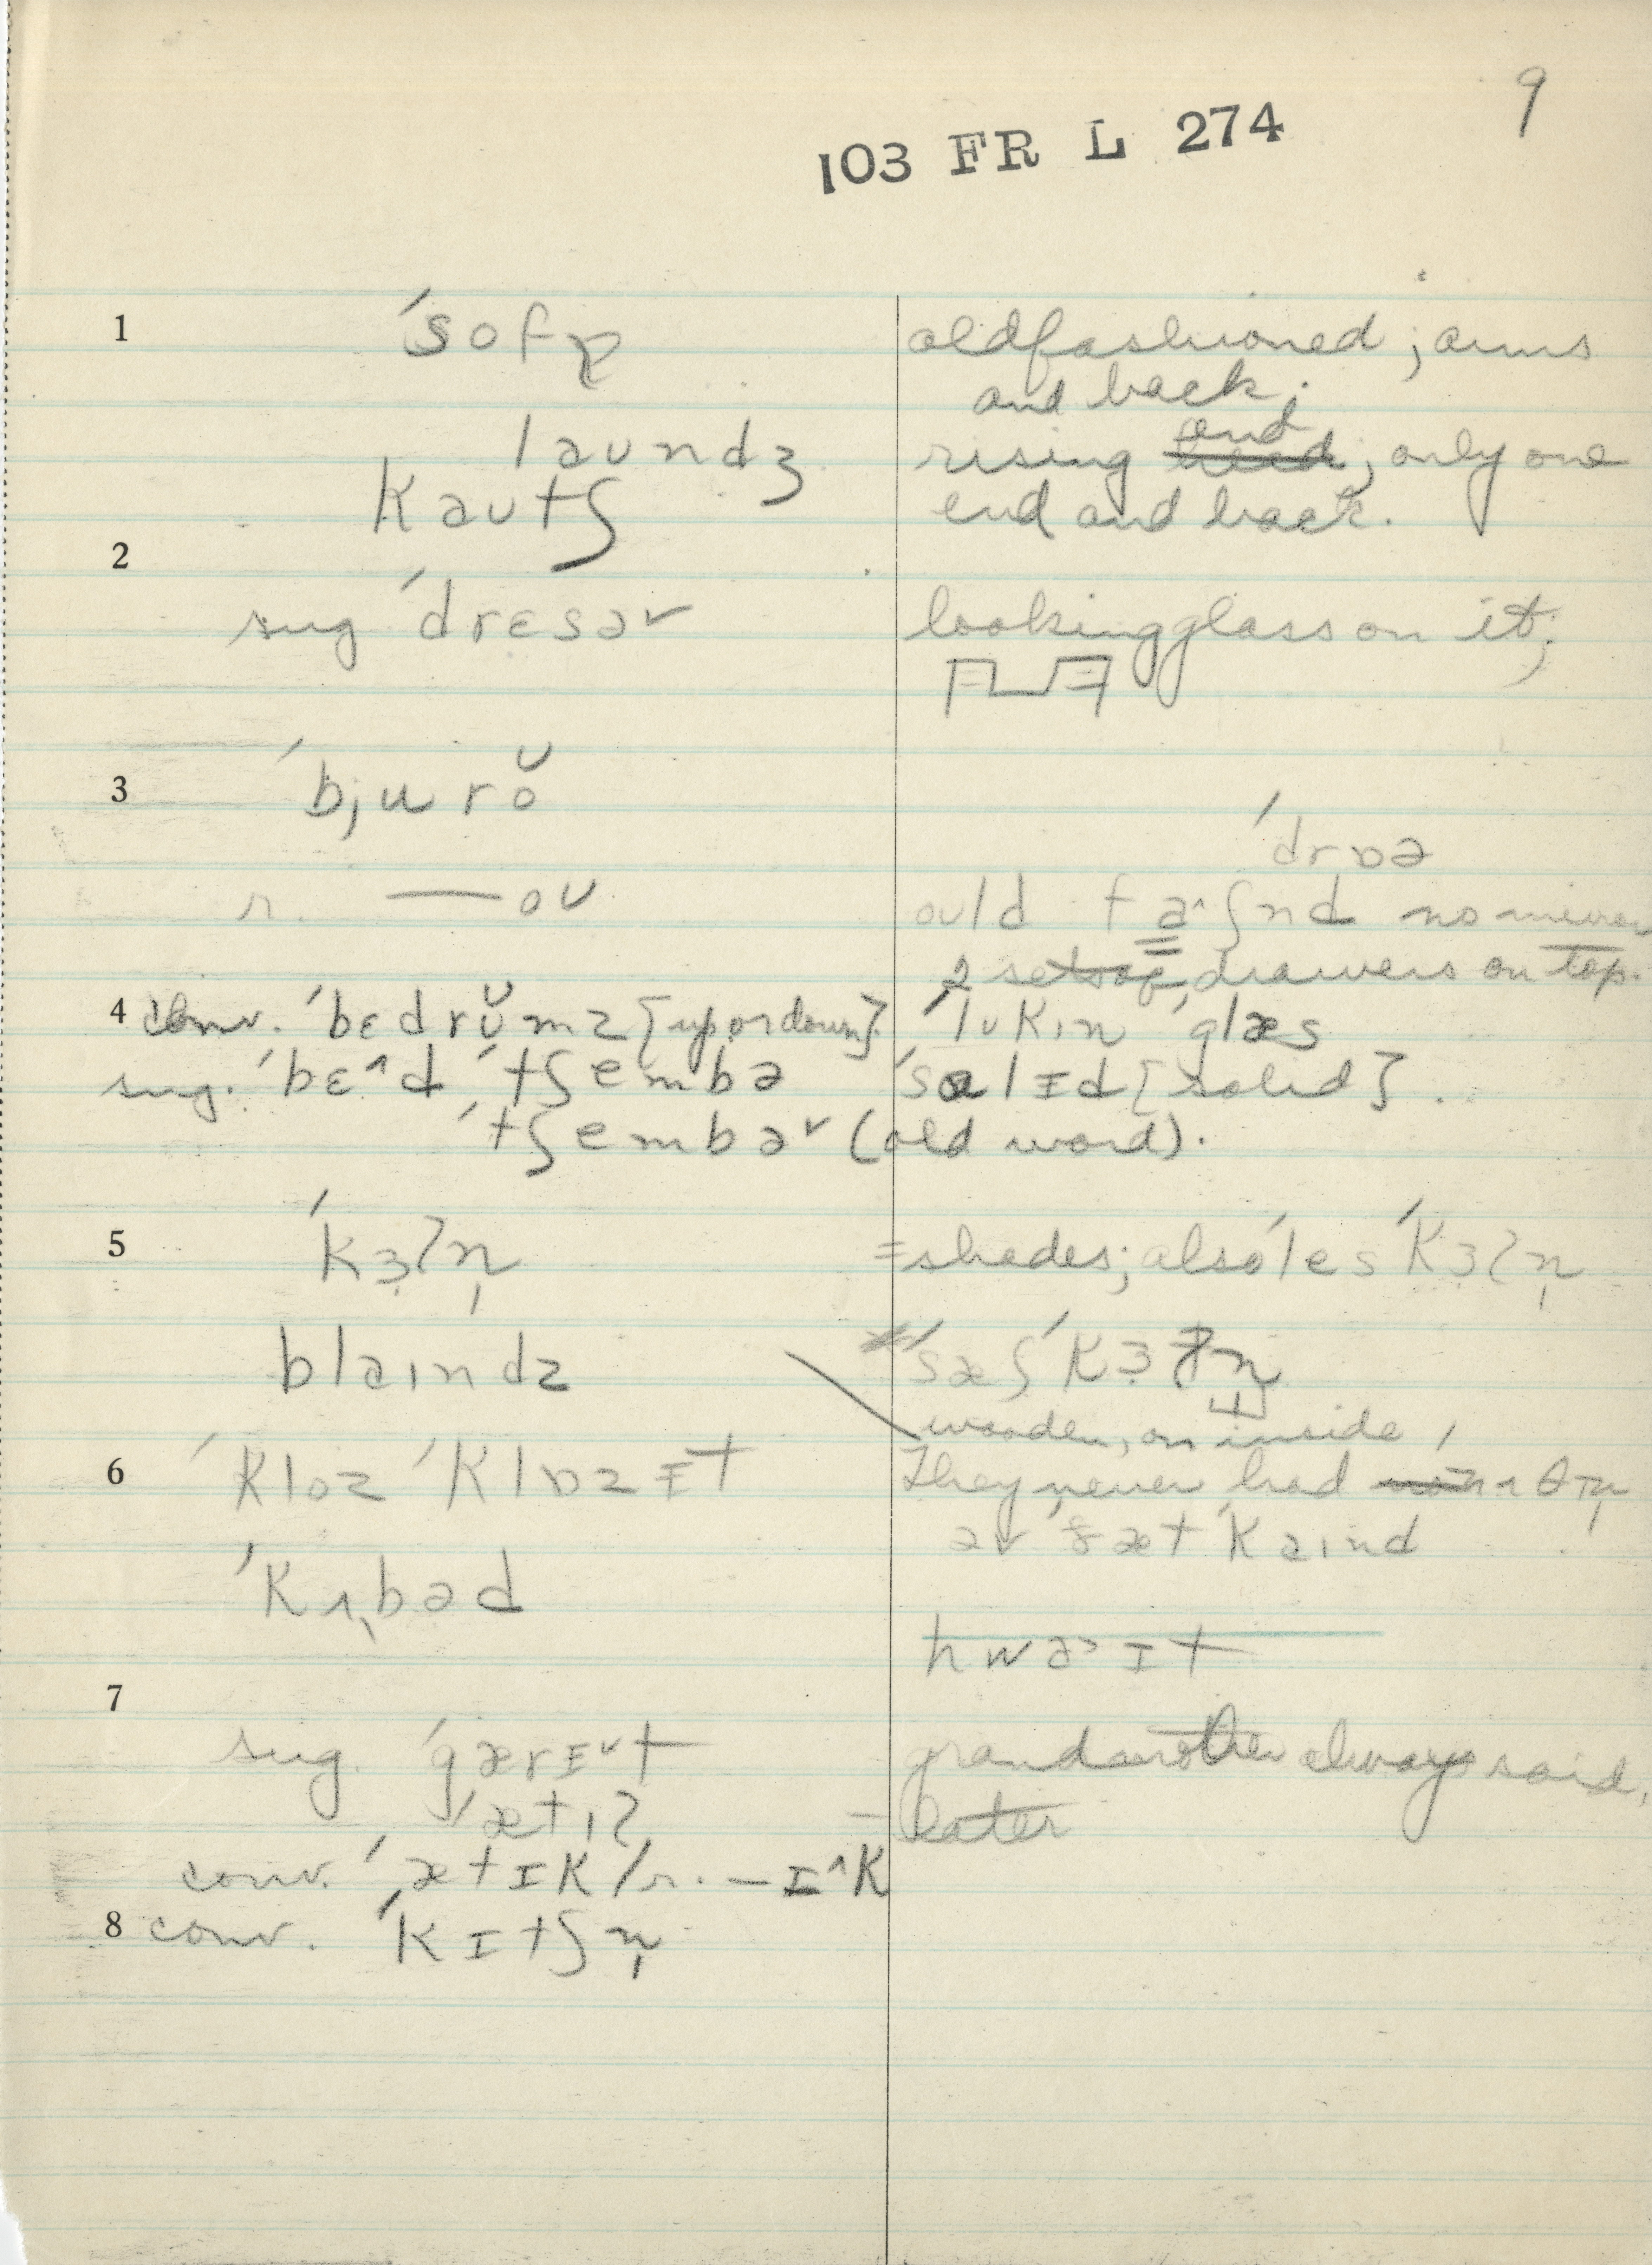 9
103 FR L 274
1 ˈsofə oldfashioned; arms
and back;
laundʒ rising end; only one
kautʃ end and back.
2
sug ˈdresər lookingglass on it;
3 ˈbjurŏ
ˈdrɒə
r. —oʊ ould fa^ʃnd no mirror
2 sets of drawers on top.
4 conv. ˈbɛdrŭmz [up or down]. ˈlʊkɪn ˈglæs
sug. ˈbɛ^d ˈtʃembə ˈsalɪd [solid].
ˈtʃembəv (old word).
5 ˈkɜʔn̩ = shades; also ˈles ˈkɜʔn̩
blaɪndz ˈsæʃ ˈkɜʔn̩
wooden, on inside,
6 ˈkloz ˈklɒzɪt They never had
əv ðæt kaɪnd
ˈkʌbəd
hwɒ>ɪt
7
sug. ˈgærɪ˅t grandmother always said,
ˈætɪʔ – later
conv. ˈætɪk / r. —ɪ^k
8 conv. ˈkɪtʃn̩